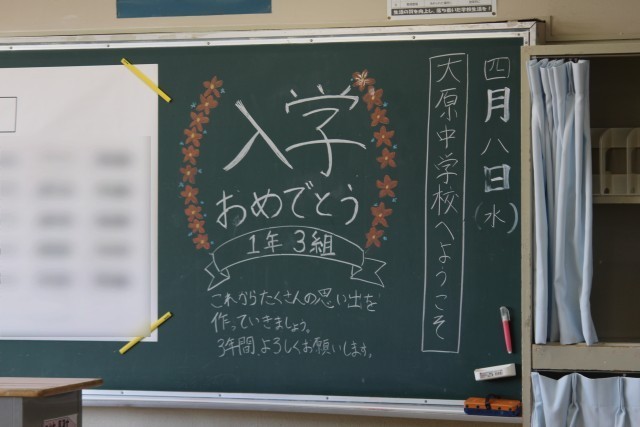 四月八日(水)
大原中学校へようこそ
入学
おめでとう
1年 3組
これからたくさんの思い出を
作っていきましょう。
3年間よろしくお願いします。